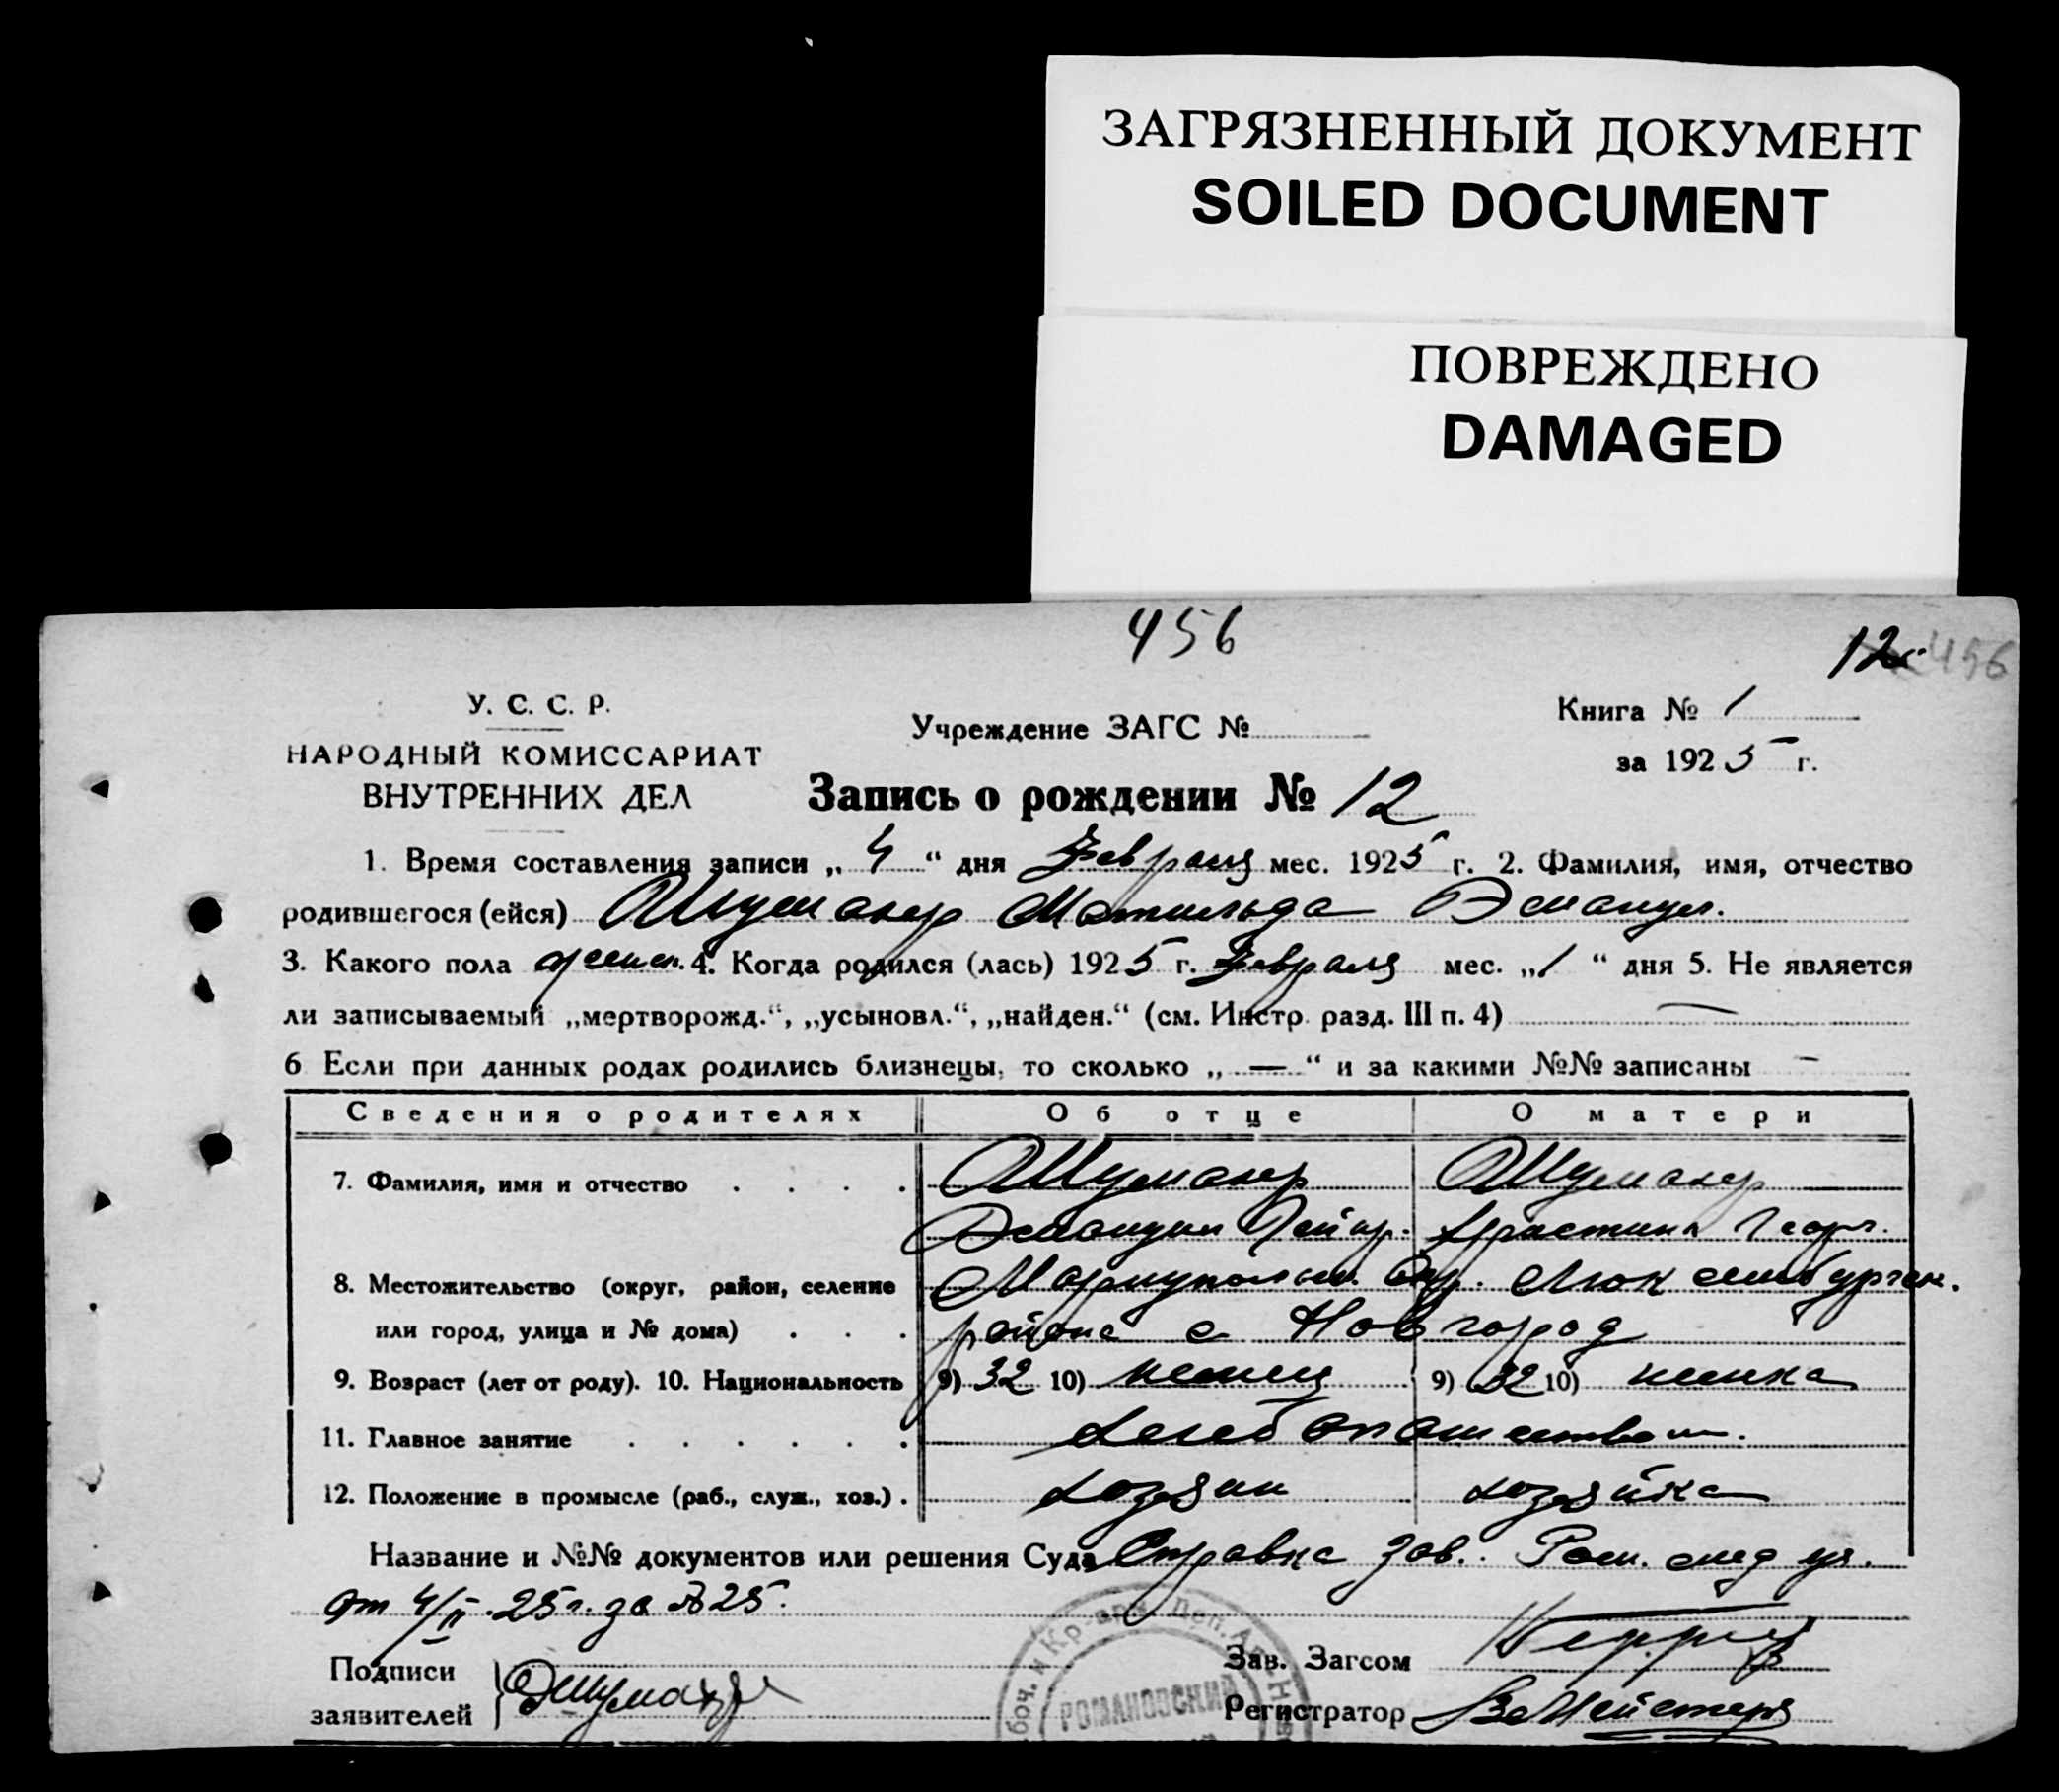 ЗАГРЯЗНЕННЫЙ ДОКУМЕНТ
SOILED DOCUMENT
ПОВРЕЖДЕНО
DAMAGED
456
12 456
У. С. С. Р.
НАРОДНЫЙ КОМИССАРИАТ
ВНУТРЕННИХ ДЕЛ
Учреждение ЗАГС №
Книга № 1
за 1925 г.
Запись о рождении № 12
1. Время составления записи „ 4 “ дня Февраля мес. 1925 г. 2. Фамилия, имя, отчество
родившегося (ейся) Шумахер Матильда Эмануил.
3. Какого пола женск. 4. Когда родился (лась) 1925 г. Февраля мес. „1 “ дня 5. Не является
ли записываемый „мертворожд.“, „усыновл.“, „найден.“ (см. Инстр. разд. III п. 4) —
6 Если при данных родах родились близнецы, то сколько „ — “ и за какими №№ записаны —
Сведения о родителях Об отце О матери
7. Фамилия, имя и отчество . . . . Шумахер Шумахер
Эмануил Христина Георг.
8. Местожительство (округ, район, селение Мариупольск. Окр. Люксембургск.
или город, улица и № дома) . . . района с Новгород
9. Возраст (лет от роду). 10. Национальность 9) 32 10) немец 9) 32 10) немка
11. Главное занятие . . . . . . Хлебопашеством.
12. Положение в промысле (раб., служ., хоз.) . хозяин хозяйка
Название и №№ документов или решения Суда Справка Зав. мед уч.
от 4/II 25 г. за № 25.
Подписи
заявителей } ЭШумахер
Зав. Загсом
Регистратор
РОМАНОВСКИЙ